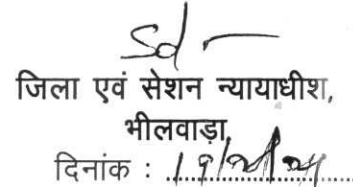 Sd -
जिला एवं सेशन न्यायाधीश,
भीलवाड़ा,
दिनांक :